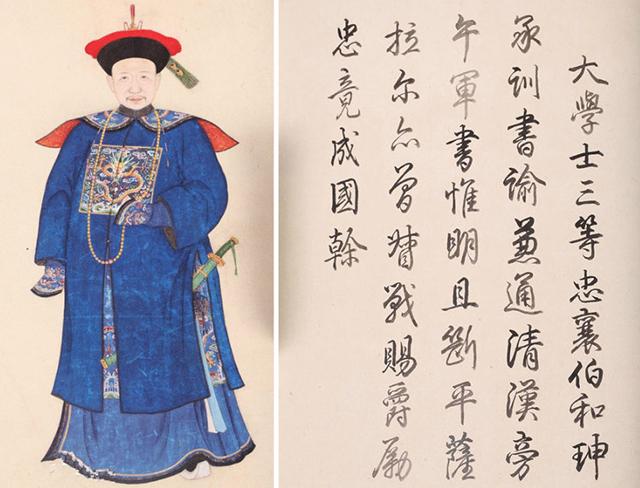 大學士三等忠襄伯和珅
承訓書諭兼通清漢旁
午軍書惟明且斷平薩
拉尔亦曾督戰賜爵励
忠竟成國榦